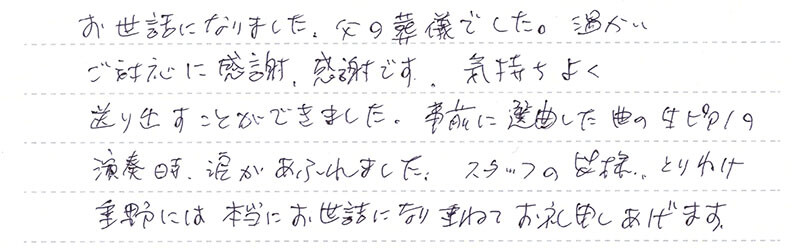 お世話になりました。父の葬儀でした。温かい
ご対応に感謝、感謝です。気持ちよく
送り出すことができました。事前に選曲した曲の生ピアノの
演奏時、涙があふれました。スタッフの皆様、とりわけ
重野には本当にお世話になり重ねてお礼申しあげます。